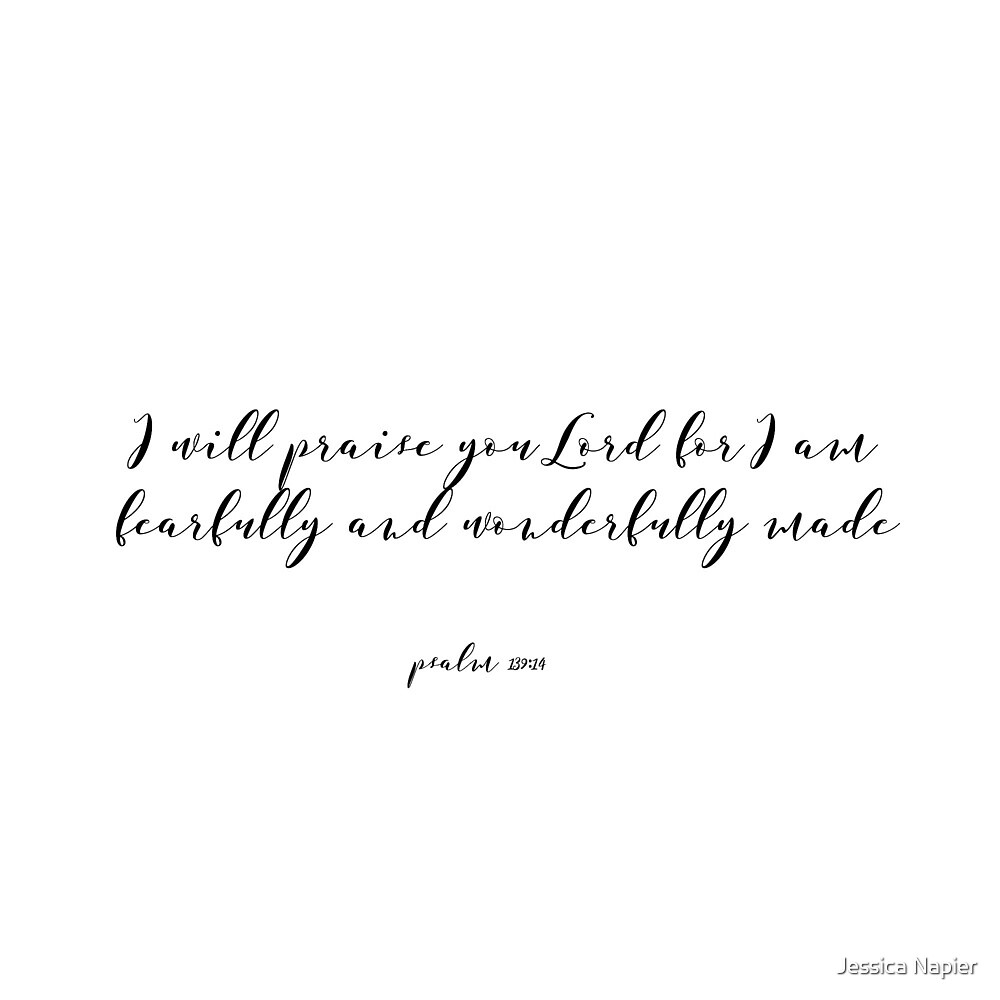 I will praise you Lord for I am
fearfully and wonderfully made
psalm 139:14
Jessica Napier